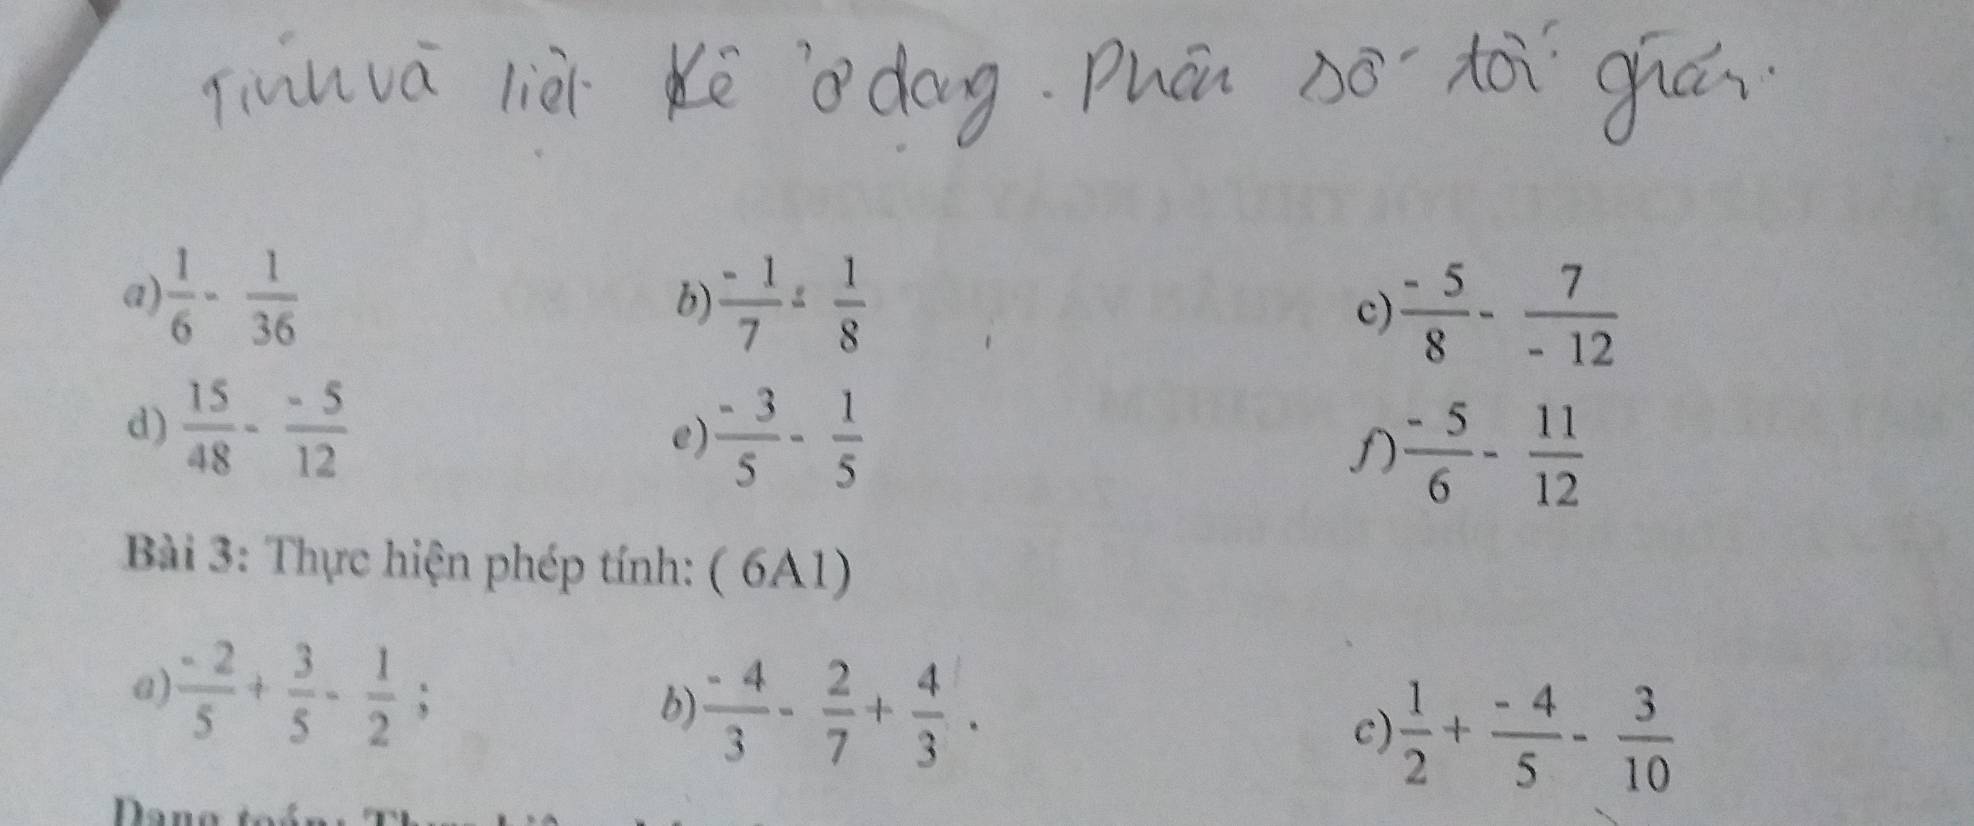 Tính và liệt kê ở dạng. Phân số tối giản.
a) 1/6 - 1/36 b) -1/7 - 1/8 c) -5/8 - 7/-12
d) 15/48 - -5/12 e) -3/5 - 1/5 f) -5/6 - 11/12
Bài 3: Thực hiện phép tính: ( 6A1)
a) -2/5 + 3/5 - 1/2 ; b) -4/3 - 2/7 + 4/3 . c) 1/2 + -4/5 - 3/10
Dạng toán: